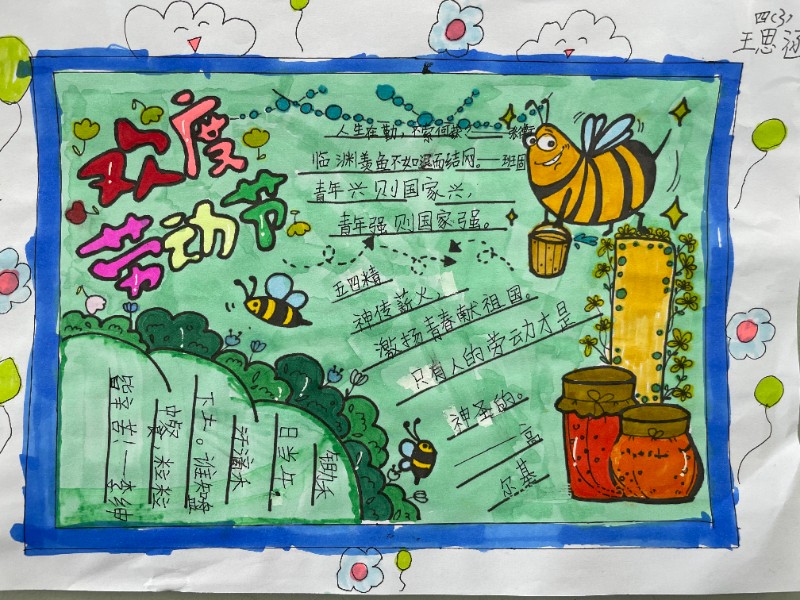 四(3)
王思涵
欢度
劳动节
人生在勤,不索何获?——张衡
临渊羡鱼不如退而结网。——班固
青年兴则国家兴,
青年强则国家强。
五四精
神传薪火,
激扬青春献祖国。
只有人的劳动才是
神圣的。
——高
尔基
锄禾
日当午,
汗滴禾
下土。谁知盘
中餐 粒粒
皆辛苦!——李绅